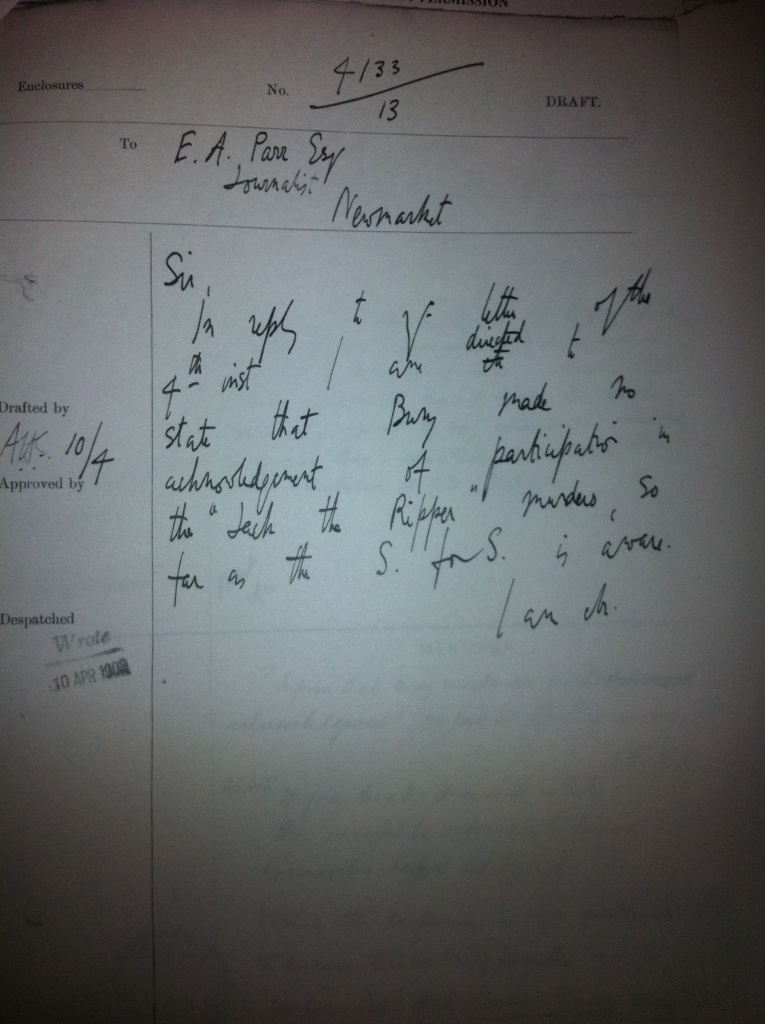 PERMISSION
Enclosures
No. 4133
13
DRAFT.
To
E. A. Parr Esq
Journalist
Newmarket
Sir,
In reply to yr letter of the
4th inst I am directed to
state that Bury made no
acknowledgement of participation in
the "Jack the Ripper" murders, so
far as the S. for S. is aware.
I am
Drafted by
10/4
Approved by
Despatched
Wrote
10 APR